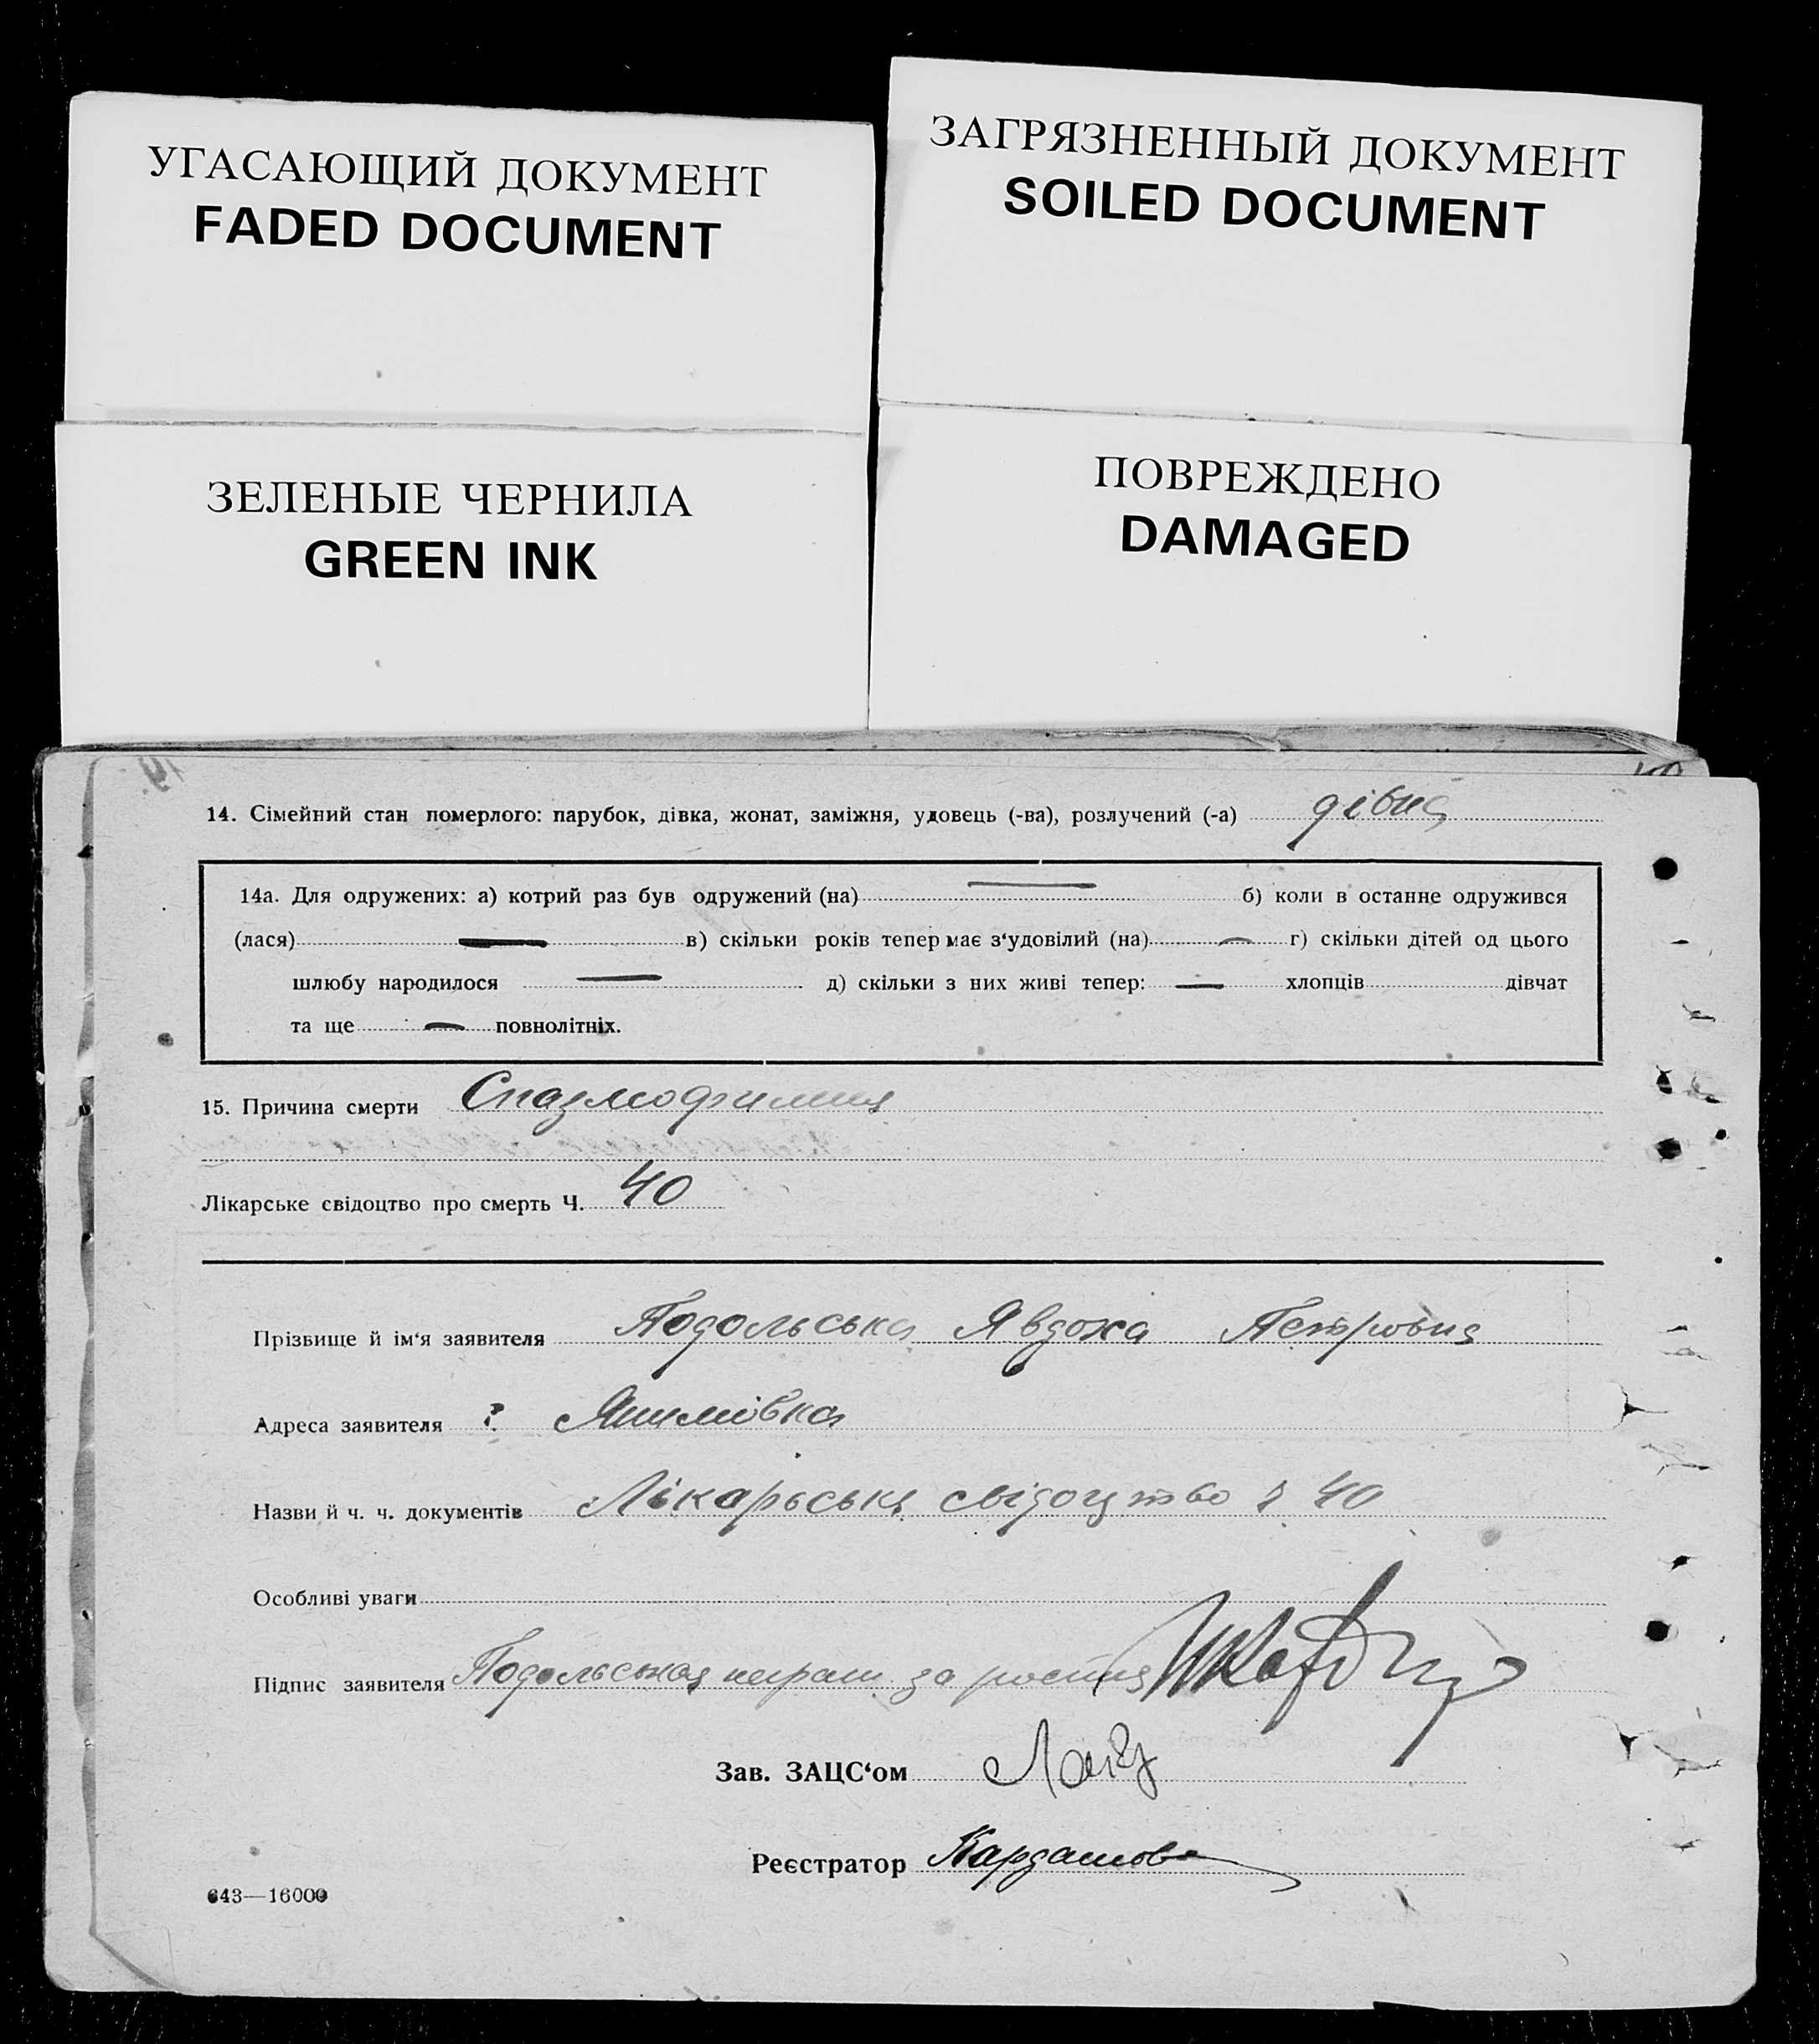 УГАСАЮЩИЙ ДОКУМЕНТ
FADED DOCUMENT
ЗАГРЯЗНЕННЫЙ ДОКУМЕНТ
SOILED DOCUMENT
ЗЕЛЕНЫЕ ЧЕРНИЛА
GREEN INK
ПОВРЕЖДЕНО
DAMAGED
14. Сімейний стан померлого: парубок, дівка, жонат, заміжня, удовець (-ва), розлучений (-а)
14а. Для одружених: а) котрий раз був одружений (на) б) коли в останнє одружився
(лася) в) скільки років тепер має з‘удовілий (на) г) скільки дітей од цього
шлюбу народилося д) скільки з них живі тепер: хлопців дівчат
та ще повнолітніх.
15. Причина смерти Спазмофилия
Лікарське свідоцтво про смерть Ч. 40
Прізвище й ім‘я заявителя Подольська Явдоха Петровна
Адреса заявителя ?
Назви й ч. ч. документів свідоцтво 40
Особливі уваги
Підпис заявителя за
Зав. ЗАЦС‘ом
Реєстратор Кардашова
643—16000